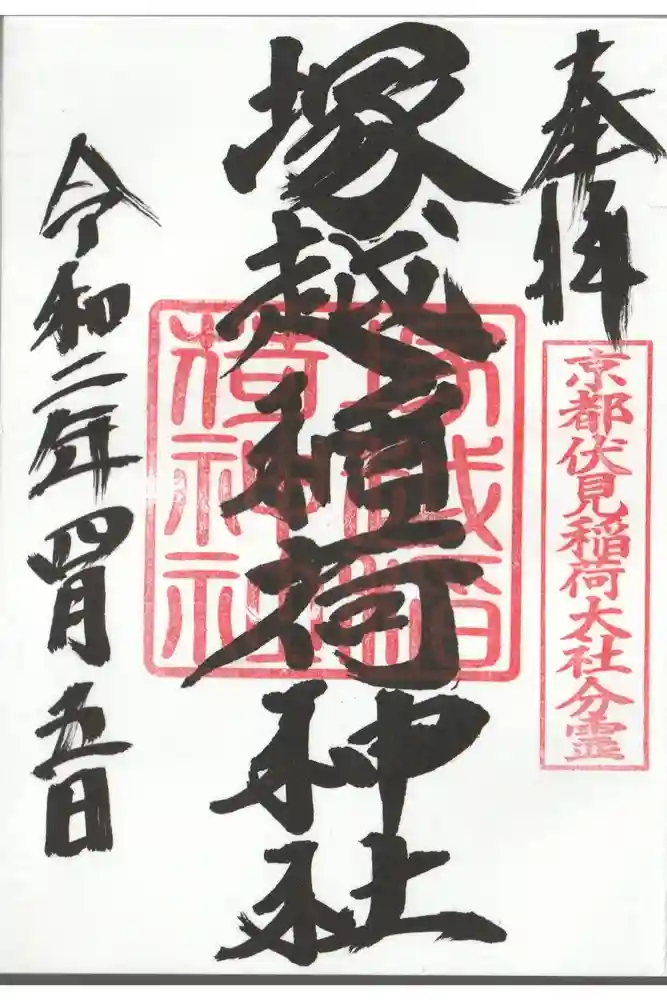 奉拝
京都伏見稲荷大社分霊
塚越稲荷神社
塚越稲荷神社
令和二年四月五日